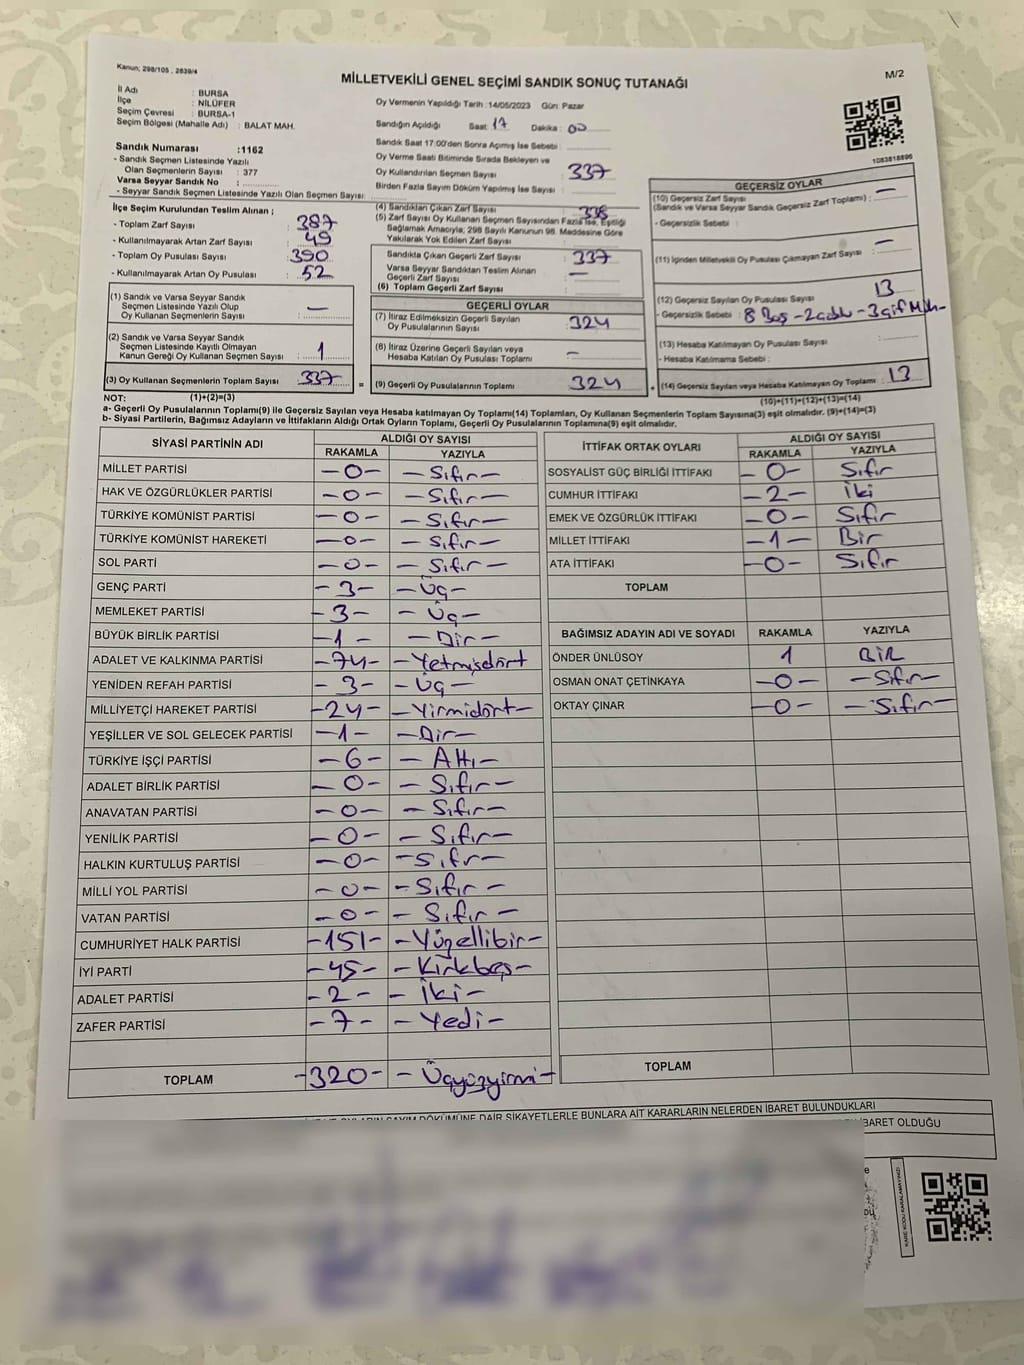 Kanun; 298/105 , 2839/4
MİLLETVEKİLİ GENEL SEÇİMİ SANDIK SONUÇ TUTANAĞI
M/2
İl Adı : BURSA
İlçe : NİLÜFER
Seçim Çevresi : BURSA-1
Seçim Bölgesi (Mahalle Adı) : BALAT MAH.
Sandık Numarası :1162
- Sandık Seçmen Listesinde Yazılı
Olan Seçmenlerin Sayısı : 377
Varsa Seyyar Sandık No :
- Seyyar Sandık Seçmen Listesinde Yazılı Olan Seçmen Sayısı:
Oy Vermenin Yapıldığı Tarih :14/05/2023 Gün: Pazar
Sandığın Açıldığı Saat: 17 Dakika : 00
Sandık Saat 17:00'den Sonra Açımış İse Sebebi :
Oy Verme Saati Bitiminde Sırada Bekleyen ve
Oy Kullandırılan Seçmen Sayısı : 337
Birden Fazla Sayım Döküm Yapılmış İse Sayısı :
1083818896
İlçe Seçim Kurulundan Teslim Alınan ;
- Toplam Zarf Sayısı : 387
- Kullanılmayarak Artan Zarf Sayısı : 49
- Toplam Oy Pusulası Sayısı : 390
- Kullanılmayarak Artan Oy Pusulası : 52
(1) Sandık ve Varsa Seyyar Sandık
Seçmen Listesinde Yazılı Olup
Oy Kullanan Seçmenlerin Sayısı : —
(2) Sandık ve Varsa Seyyar Sandık
Seçmen Listesinde Kayıtlı Olmayan
Kanun Gereği Oy Kullanan Seçmen Sayısı : 1
(3) Oy Kullanan Seçmenlerin Toplam Sayısı : 337
(1)+(2)=(3)
(4) Sandıktan Çıkan Zarf Sayısı : 338
(5) Zarf Sayısı Oy Kullanan Seçmen Sayısından Fazla İse, Eşitliği
Sağlamak Amacıyla; 298 Sayılı Kanunun 98. Maddesine Göre
Yakılarak Yok Edilen Zarf Sayısı :
Sandıkta Çıkan Geçerli Zarf Sayısı : 337
Varsa Seyyar Sandıktan Teslim Alınan
Geçerli Zarf Sayısı : —
(6) Toplam Geçerli Zarf Sayısı :
GEÇERLİ OYLAR
(7) İtiraz Edilmeksizin Geçerli Sayılan
Oy Pusulalarının Sayısı : 324
(8) İtiraz Üzerine Geçerli Sayılan veya
Hesaba Katılan Oy Pusulası Toplamı : —
= (9) Geçerli Oy Pusulalarının Toplamı : 324
GEÇERSİZ OYLAR
(10) Geçersiz Zarf Sayısı : —
(Sandık ve Varsa Seyyar Sandık Geçersiz Zarf Toplamı)
- Geçersizlik Sebebi :
(11) İçinden Milletvekili Oy Pusulası Çıkmayan Zarf Sayısı : —
(12) Geçersiz Sayılan Oy Pusulası Sayısı : 13
- Geçersizlik Sebebi : 8 Boş -
(13) Hesaba Katılmayan Oy Pusulası Sayısı :
- Hesaba Katılmama Sebebi :
+ (14) Geçersiz Sayılan veya Hesaba Katılmayan Oy Toplamı : 13
(10)+(11)+(12)+(13)=(14)
NOT:
a- Geçerli Oy Pusulalarının Toplamı(9) ile Geçersiz Sayılan veya Hesaba katılmayan Oy Toplamı(14) Toplamları, Oy Kullanan Seçmenlerin Toplam Sayısına(3) eşit olmalıdır. (9)+(14)=(3)
b- Siyasi Partilerin, Bağımsız Adayların ve İttifakların Aldığı Ortak Oyların Toplamı, Geçerli Oy Pusulalarının Toplamına(9) eşit olmalıdır.
SİYASİ PARTİNİN ADI ALDIĞI OY SAYISI
RAKAMLA YAZIYLA
MİLLET PARTİSİ -0- -Sıfır-
HAK VE ÖZGÜRLÜKLER PARTİSİ -0- -Sıfır-
TÜRKİYE KOMÜNİST PARTİSİ -0- -Sıfır-
TÜRKİYE KOMÜNİST HAREKETİ -0- -Sıfır-
SOL PARTİ -0- -Sıfır-
GENÇ PARTİ -3- -Üç-
MEMLEKET PARTİSİ -3- -Üç-
BÜYÜK BİRLİK PARTİSİ -1- -Bir-
ADALET VE KALKINMA PARTİSİ -74- -Yetmişdört
YENİDEN REFAH PARTİSİ -3- -Üç-
MİLLİYETÇİ HAREKET PARTİSİ -24- -Yirmidört-
YEŞİLLER VE SOL GELECEK PARTİSİ -1- -Bir-
TÜRKİYE İŞÇİ PARTİSİ -6- -Altı-
ADALET BİRLİK PARTİSİ -0- -Sıfır-
ANAVATAN PARTİSİ -0- -Sıfır-
YENİLİK PARTİSİ -0- -Sıfır-
HALKIN KURTULUŞ PARTİSİ -0- -Sıfır-
MİLLİ YOL PARTİSİ -0- -Sıfır-
VATAN PARTİSİ -0- -Sıfır-
CUMHURİYET HALK PARTİSİ -151- -Yüzellibir-
İYİ PARTİ -45- -Kırkbeş-
ADALET PARTİSİ -2- -İki-
ZAFER PARTİSİ -7- -Yedi-
TOPLAM -320- -Üçyüzyirmi-
İTTİFAK ORTAK OYLARI ALDIĞI OY SAYISI
RAKAMLA YAZIYLA
SOSYALİST GÜÇ BİRLİĞİ İTTİFAKI -0- Sıfır
CUMHUR İTTİFAKI -2- İki
EMEK VE ÖZGÜRLÜK İTTİFAKI -0- Sıfır
MİLLET İTTİFAKI -1- Bir
ATA İTTİFAKI -0- Sıfır
TOPLAM
BAĞIMSIZ ADAYIN ADI VE SOYADI RAKAMLA YAZIYLA
ÖNDER ÜNLÜSOY 1 BİR
OSMAN ONAT ÇETİNKAYA -0- -Sıfır-
OKTAY ÇINAR -0- -Sıfır-
TOPLAM
SAYIM DÖKÜMÜNE DAİR ŞİKAYETLERLE BUNLARA AİT KARARLARIN NELERDEN İBARET BULUNDUKLARI
İBARET OLDUĞU
KARE KODU KARALAMAYINIZ!